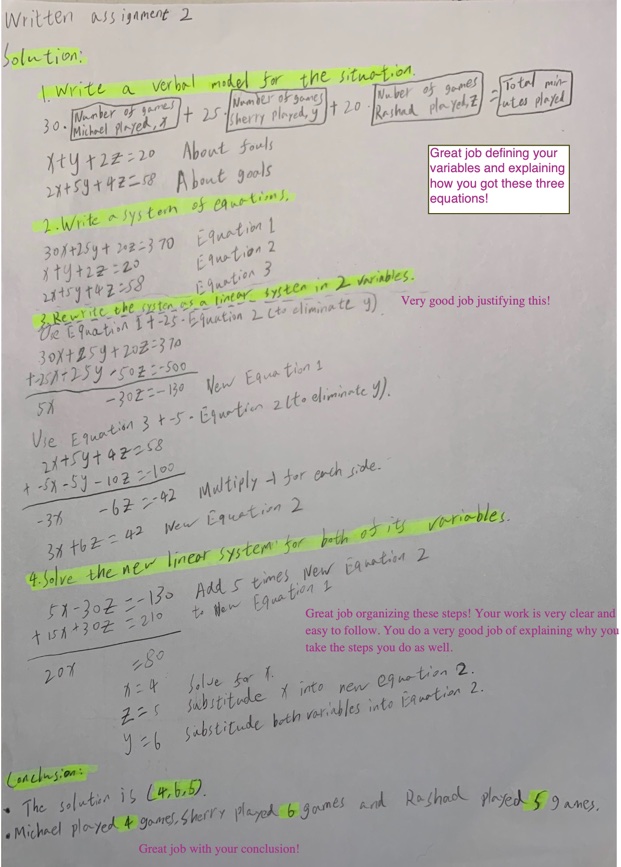 Written assignment 2
Solution:
1. Write a verbal model for the situation.
30 · Number of games Michael played, x + 25 · Number of games Sherry played, y + 20 · Nuber of games Rashad played, z = Total minutes played
x+y+2z=20 About fouls
2x+5y+4z=58 About goals
Great job defining your
variables and explaining
how you got these three
equations!
2. Write a system of equations.
30x+25y+20z=370 Equation 1
x+y+2z=20 Equation 2
2x+5y+4z=58 Equation 3
3. Rewrite the system as a linear system in 2 variables.
Very good job justifying this!
Use Equation 1+-25·Equation 2 (to eliminate y)
30x+25y+20z=370
+-25x-25y-50z=-500
5x -30z=-130 New Equation 1
Use Equation 3 +-5·Equation 2 (to eliminate y).
2x+5y+4z=58
+-5x-5y-10z=-100
-3x -6z=-42 Multiply -1 for each side.
3x+6z=42 New Equation 2
4. Solve the new linear system for both of its variables.
5x-30z=-130 Add 5 times New Equation 2
+15x+30z=210 to New Equation 1
Great job organizing these steps! Your work is very clear and
easy to follow. You do a very good job of explaining why you
take the steps you do as well.
20x =80
x=4 Solve for x.
z=5 substitute x into new equation 2.
y=6 substitute both variables into Equation 2.
Conclusion:
• The solution is (4,6,5).
• Michael played 4 games, Sherry played 6 games and Rashad played 5 games.
Great job with your conclusion!